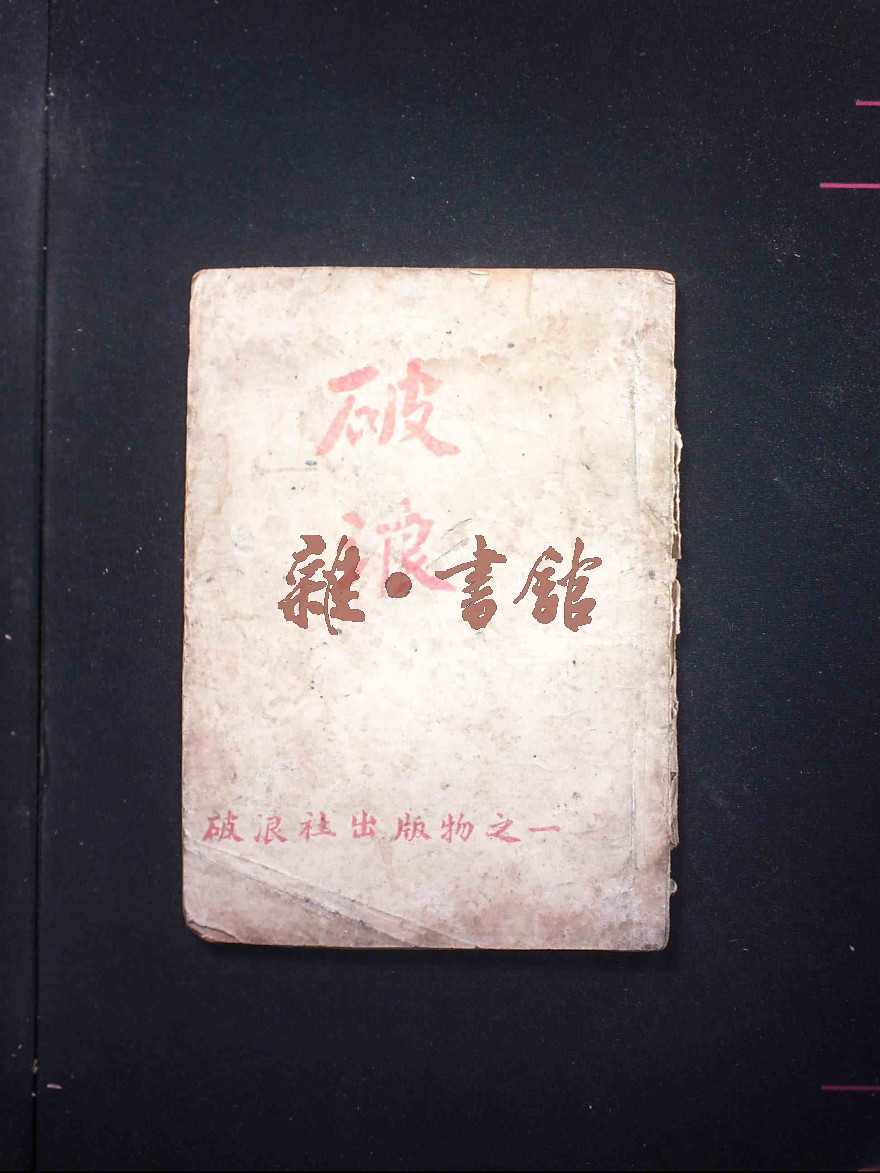 破
浪
雜·書館
破浪社出版物之一